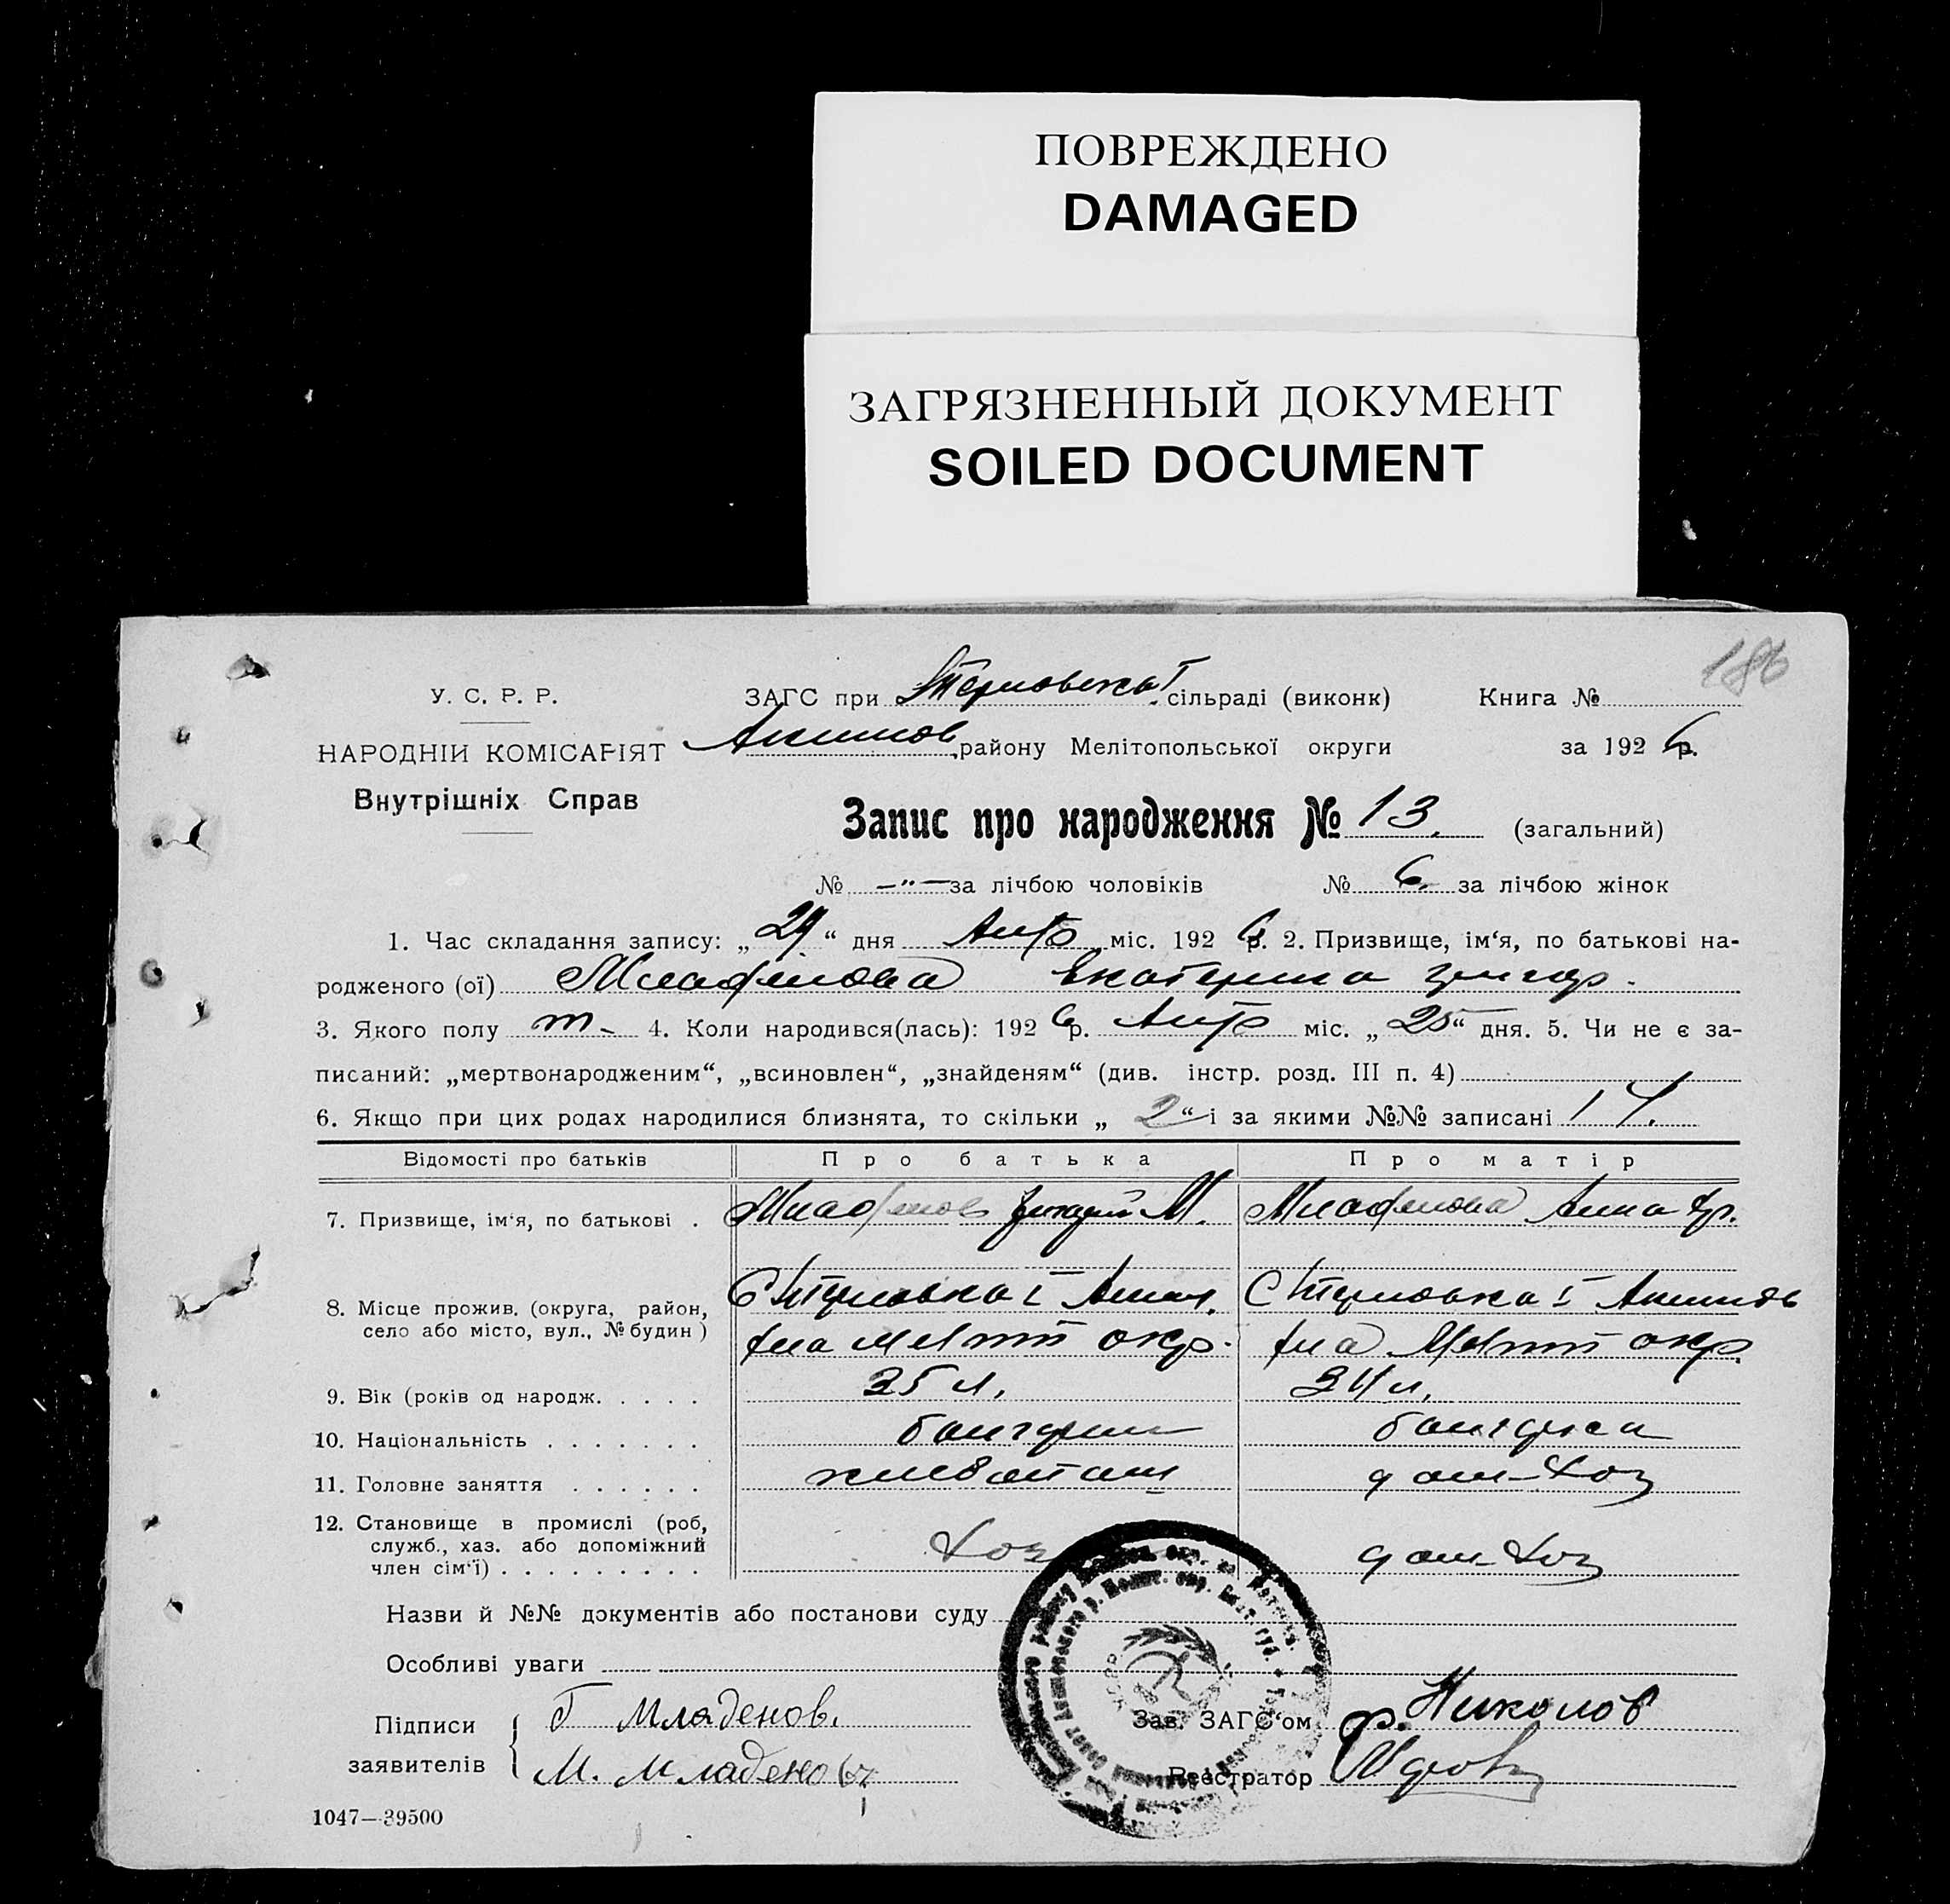 ПОВРЕЖДЕНО
DAMAGED
ЗАГРЯЗНЕННЫЙ ДОКУМЕНТ
SOILED DOCUMENT
186
У. С. Р. Р.
ЗАГС при сільраді (виконк) Книга №
НАРОДНІЙ КОМІСАРІЯТ Акимов району Мелітопольської округи за 1926р.
Внутрішніх Справ
Запис про народження № 13. (загальний)
№ —"— за лічбою чоловіків № 6 за лічбою жінок
1. Час складання запису: „29“ дня міс. 1926р. 2. Призвище, ім‘я, по батькові на-
родженого (ої) Младенова Екатерина григор.
3. Якого полу 4. Коли народився(лась): 1926р. міс. „25“ дня. 5. Чи не є за-
писаний: „мертвонародженим“, „всиновлен“, „знайденям“ (див. інстр. розд. III п. 4)
6. Якщо при цих родах народилися близнята, то скільки „2“ і за якими №№ записані 14.
Відомості про батьків Про батька Про матір
7. Призвище, ім‘я, по батькові . Младенов М. Младенова Анна
8. Місце прожив. (округа, район, село або місто, вул., № будин) С Штерновка I Аким. С Штерновка I Акимов
на Мелит окр. на Мелит окр.
9. Вік (років од народж. . . . . 35 л. 34 л.
10. Національність . . . . . . . болгарин болгарка
11. Головне заняття . . . . . . хлебопаш дом-хоз
12. Становище в промислі (роб, служб., хаз. або допоміжний член сім‘ї) . . . . . . . . . хоз дом-хоз
Назви й №№ документів або постанови суду
Особливі уваги
Підписи заявителів Г Младенов. Зав. ЗАГС‘ом Николов
М. Младенов Реєстратор
1047—39500